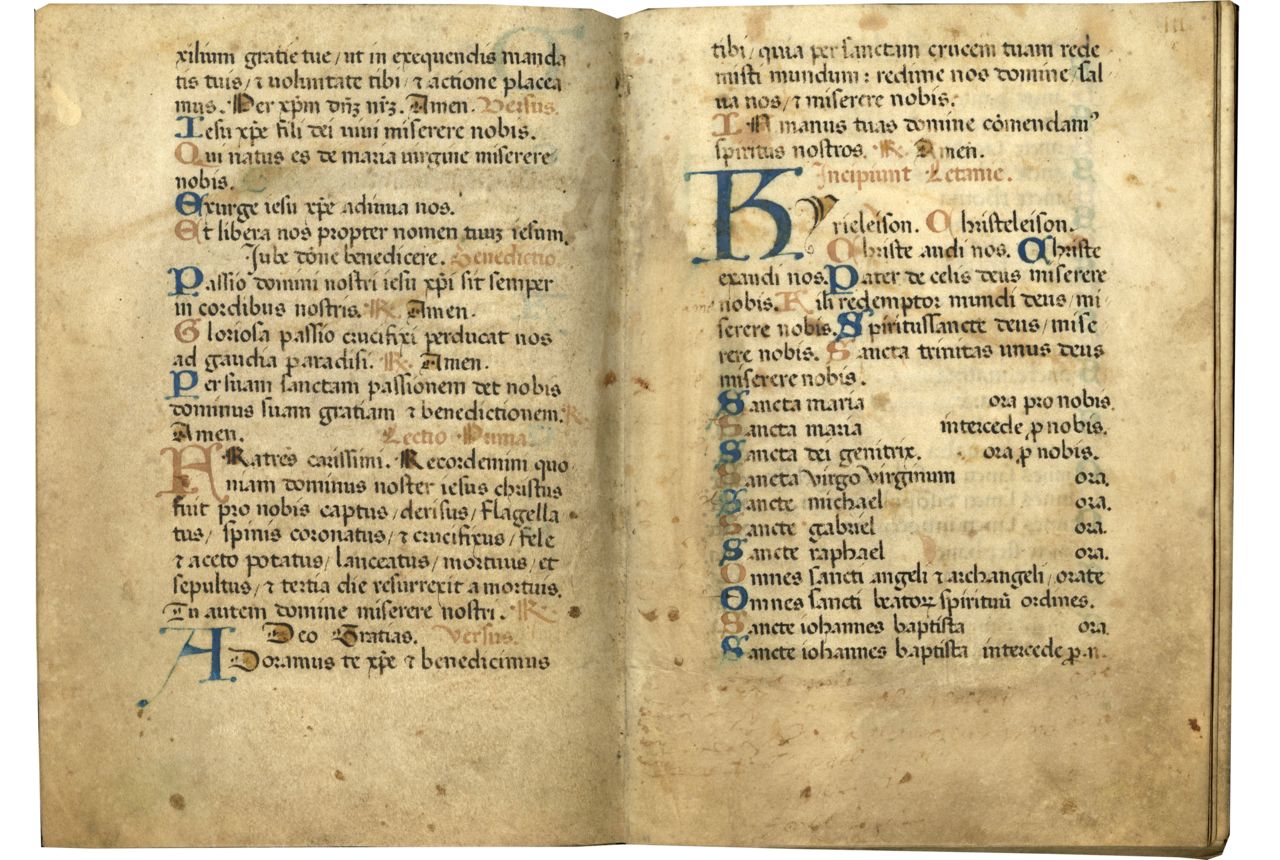 xilium gratie tue / ut in exequendis manda
tis tuis / ⁊ voluntate tibi / ⁊ actione placea
mus. Per xp̄m dn̄ʒ nr̄ʒ. Amen. Versus.
Iesu xp̄e fili dei vivi miserere nobis.
Qui natus es de maria virgine miserere
nobis.
Exurge iesu xp̄e adiuua nos.
Et libera nos propter nomen tuuʒ iesum.
Iube dōne benedicere. Benedictio
Passio domini nostri iesu xp̄i sit semper
in cordibus nostris. R. Amen.
Gloriosa passio crucifixi perducat nos
ad gaudia paradisi. R. Amen.
Per suam sanctam passionem det nobis
dominus suam gratiam ⁊ benedictionem. R
Amen. Lectio Prima.
FRatres carissimi. Recordemini quo
niam dominus noster iesus christus
fuit pro nobis captus / derisus / flagella
tus / spinis coronatus / ⁊ crucifixus / fele
⁊ aceto potatus / lanceatus / mortuus / et
sepultus / ⁊ tertia die resurrexit a mortuis.
Tu autem domine miserere nostri. R
Deo Gratias. Versus.
ADoramus te xp̄e ⁊ benedicimus
tibi / quia per sanctam crucem tuam rede
misti mundum : redime nos domine / sal
ua nos / ⁊ miserere nobis.
IN manus tuas domine cōmendamꝰ
spiritus nostros. R. Amen.
Incipiunt Letanie.
Kyrieleison. Christeleison.
Christe audi nos. Christe
exaudi nos. Pater de celis deus miserere
nobis. Fili redemptor mundi deus / mi
serere nobis. Spiritussancte deus / mise
rere nobis. Sancta trinitas unus deus
miserere nobis.
Sancta maria ora pro nobis.
Sancta maria intercede ꝓ nobis.
Sancta dei genitrix. ora ꝓ nobis.
Sancta virgo virginum ora.
Sancte michael ora.
Sancte gabriel ora.
Sancte raphael ora.
Omnes sancti angeli ⁊ archangeli / orate
Omnes sancti beatoꝝ spirituū ordines.
Sancte iohannes baptista ora.
Sancte iohannes baptista intercede ꝓ n.